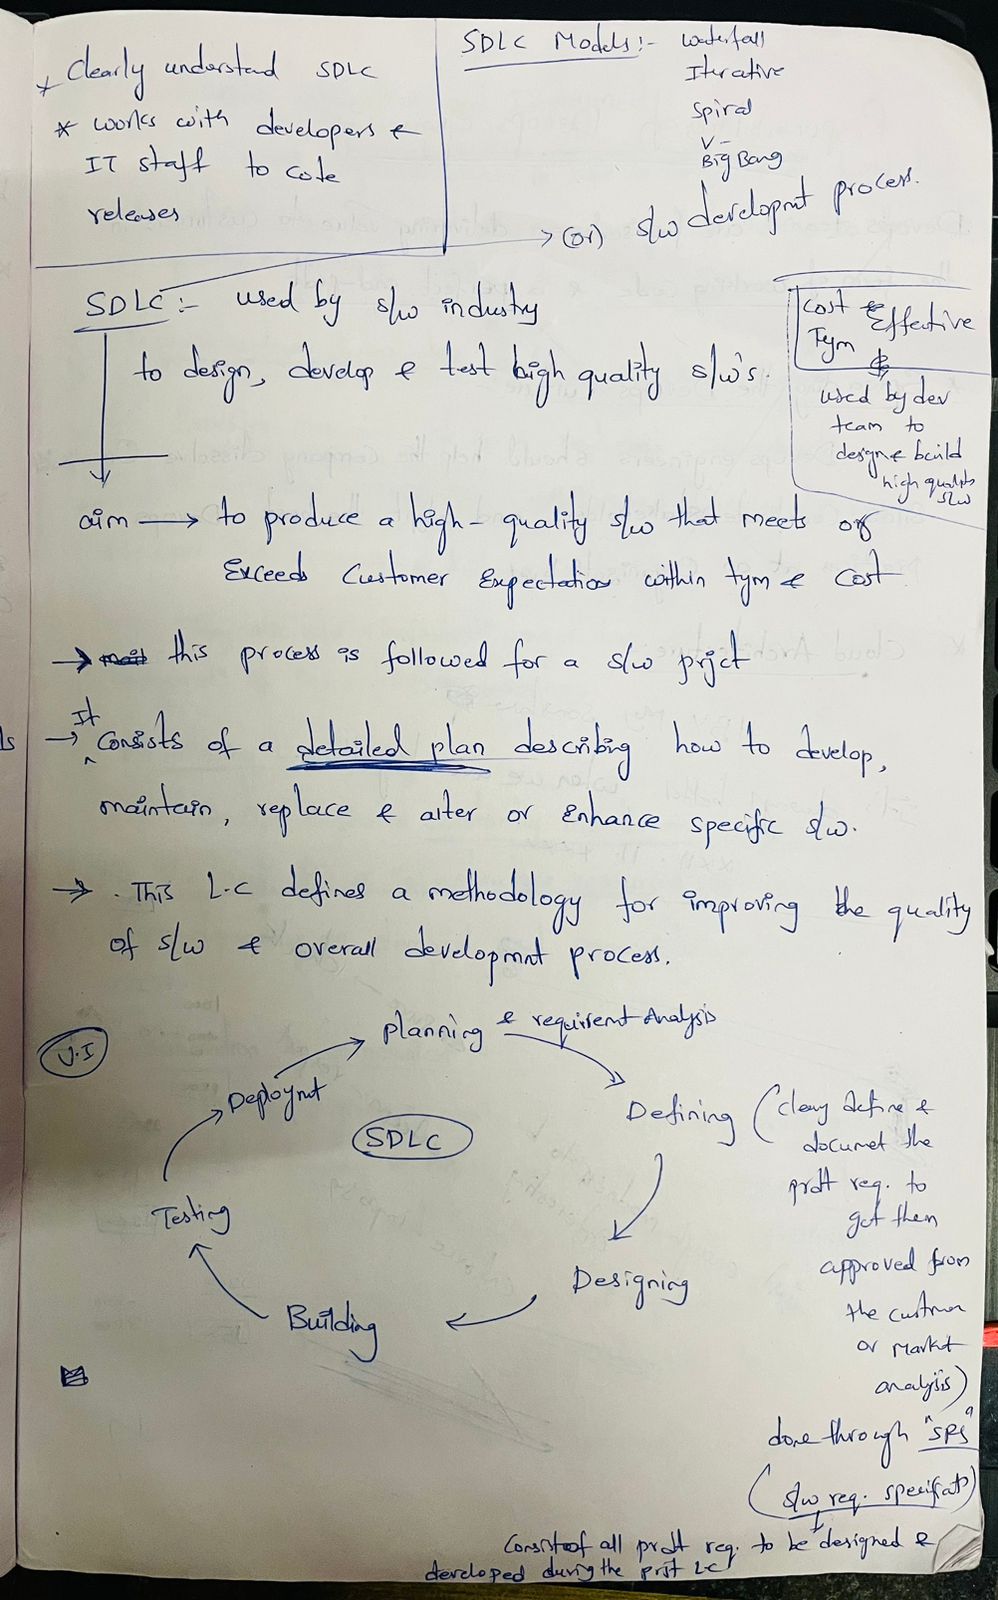 * Clearly understand SDLC
* works with developers &
IT staff to code
releases
SDLC Models :- Waterfall
Iterative
Spiral
V-
Big Bang
(or) s/w developmnt process.
SDLC :- used by s/w industry
to design, develop & test high quality s/w's.
Cost & Effective
Tym
&
used by dev
team to
design & build
high quality
s/w
aim → to produce a high-quality s/w that meets or
Exceeds Customer Expectation within tym & Cost
→ this process is followed for a s/w prjct
→ It Consists of a detailed plan describing how to develop,
maintain, replace & alter or Enhance specific s/w.
→ . This L.C defines a methodology for improving the quality
of s/w & overall developmnt process.
V.I
Planning & requirement Analysis
Deploymnt
Defining
(cleary define &
documet the
prdt req. to
get them
approved from
the custmer
or market
analysis)
SDLC
Testing
Designing
Building
done through "SRS"
(s/w req. specificat)
Consist of all prdt req. to be designed &
developed during the prjt LC